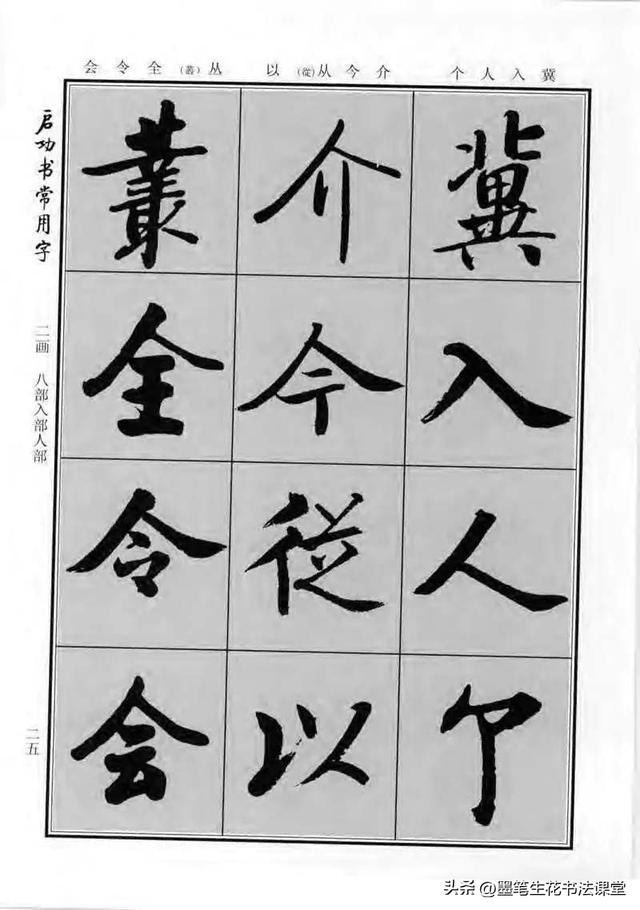 冀入人个 介今从(從)以 丛(叢)全令会
冀入人个
介今從以
叢全令会
启功书常用字
二画 八部入部人部
二五
头条 @墨笔生花书法课堂